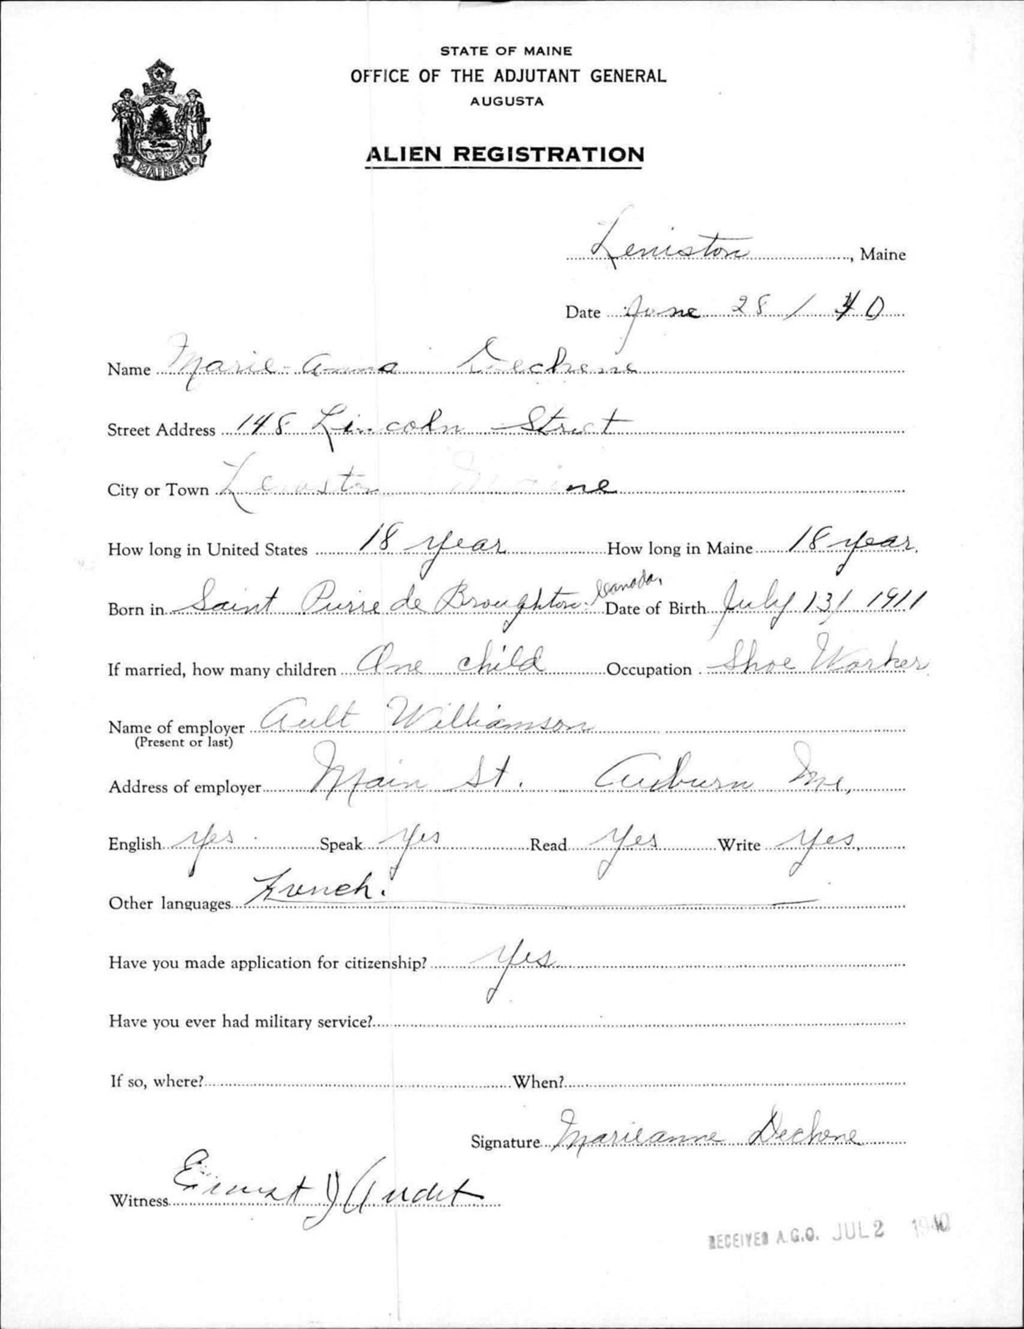 STATE OF MAINE
OFFICE OF THE ADJUTANT GENERAL
AUGUSTA
MAINE
ALIEN REGISTRATION
Leniston, Maine
Date June 28 / 40
Name Marie-Anna Dechene
Street Address 148 Lincoln Street
City or Town Leniston Maine
How long in United States 18 year How long in Maine 18 year.
Born in Saint Pierre de Broughton. Canada, Date of Birth July 13/ 1911
If married, how many children One child Occupation Shoe Worker
Name of employer Ault Williamson
(Present or last)
Address of employer Main St. Auburn Me,
English yes Speak yes Read yes Write yes.
Other languages French.
Have you made application for citizenship? yes
Have you ever had military service?
If so, where? When?
Signature Marieanne Dechene
Witness Ernest J Audet
RECEIVED A.G.O. JUL 2 1940